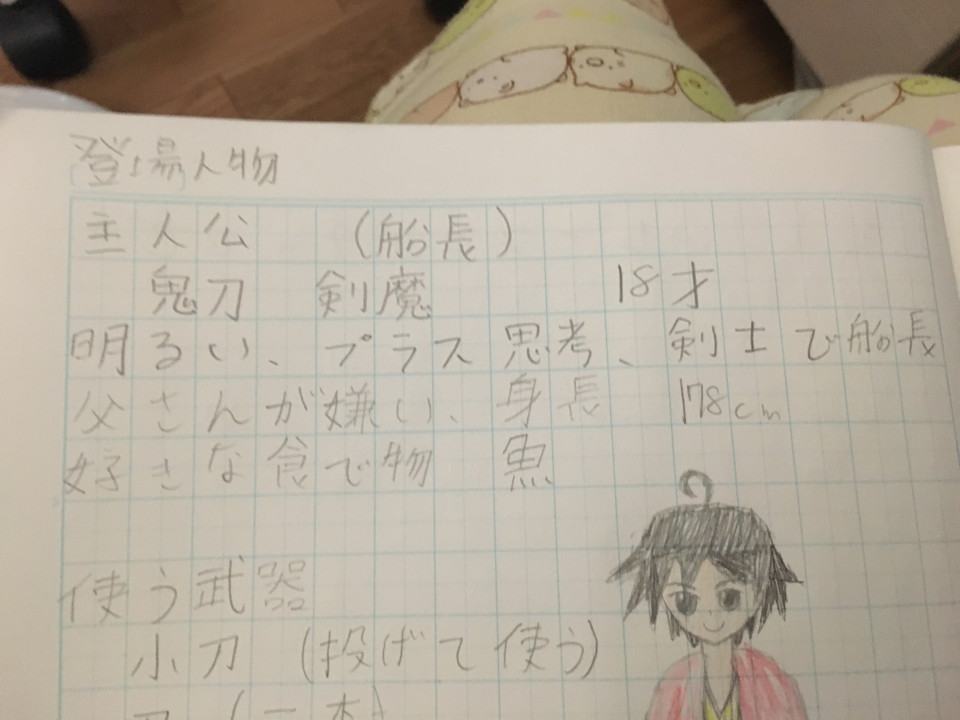 登場人物
主人公 (船長)
鬼刀 剣魔 18才
明るい、プラス思考、剣士で船長
父さんが嫌い、身長 178cm
好きな食で物 魚
使う武器
小刀 (投げて使う)